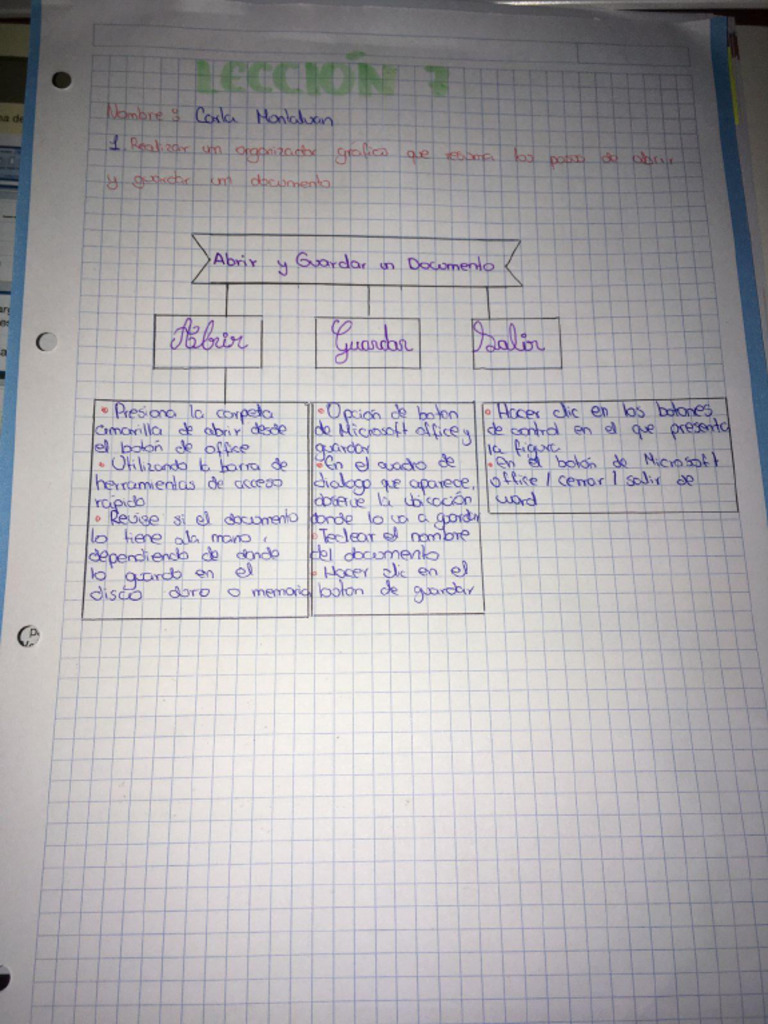 LECCIÓN 7
Nombre: Carla Montalvan
1. Realizar un organizador gráfico que resuma los pasos de abrir
y guardar un documento
Abrir y Guardar un Documento
Abrir
Guardar
Salir
• Presiona la carpeta
amarilla de abrir desde
el botón de office
• Utilizando la barra de
herramientas de acceso
rápido
• Revise si el documento
lo tiene ala mano,
dependiendo de donde
lo guardo en el
disco duro o memoria
• Opción de boton
de Microsoft office y
guardar
• En el cuadro de
dialogo que aparece,
observe la ubicación
donde lo va a guardar
• Teclear el nombre
del documento
• Hacer clic en el
boton de guardar
• Hacer clic en los botones
de control en el que presenta
la figura
• en el botón de Microsoft
office / cerrar / salir de
word